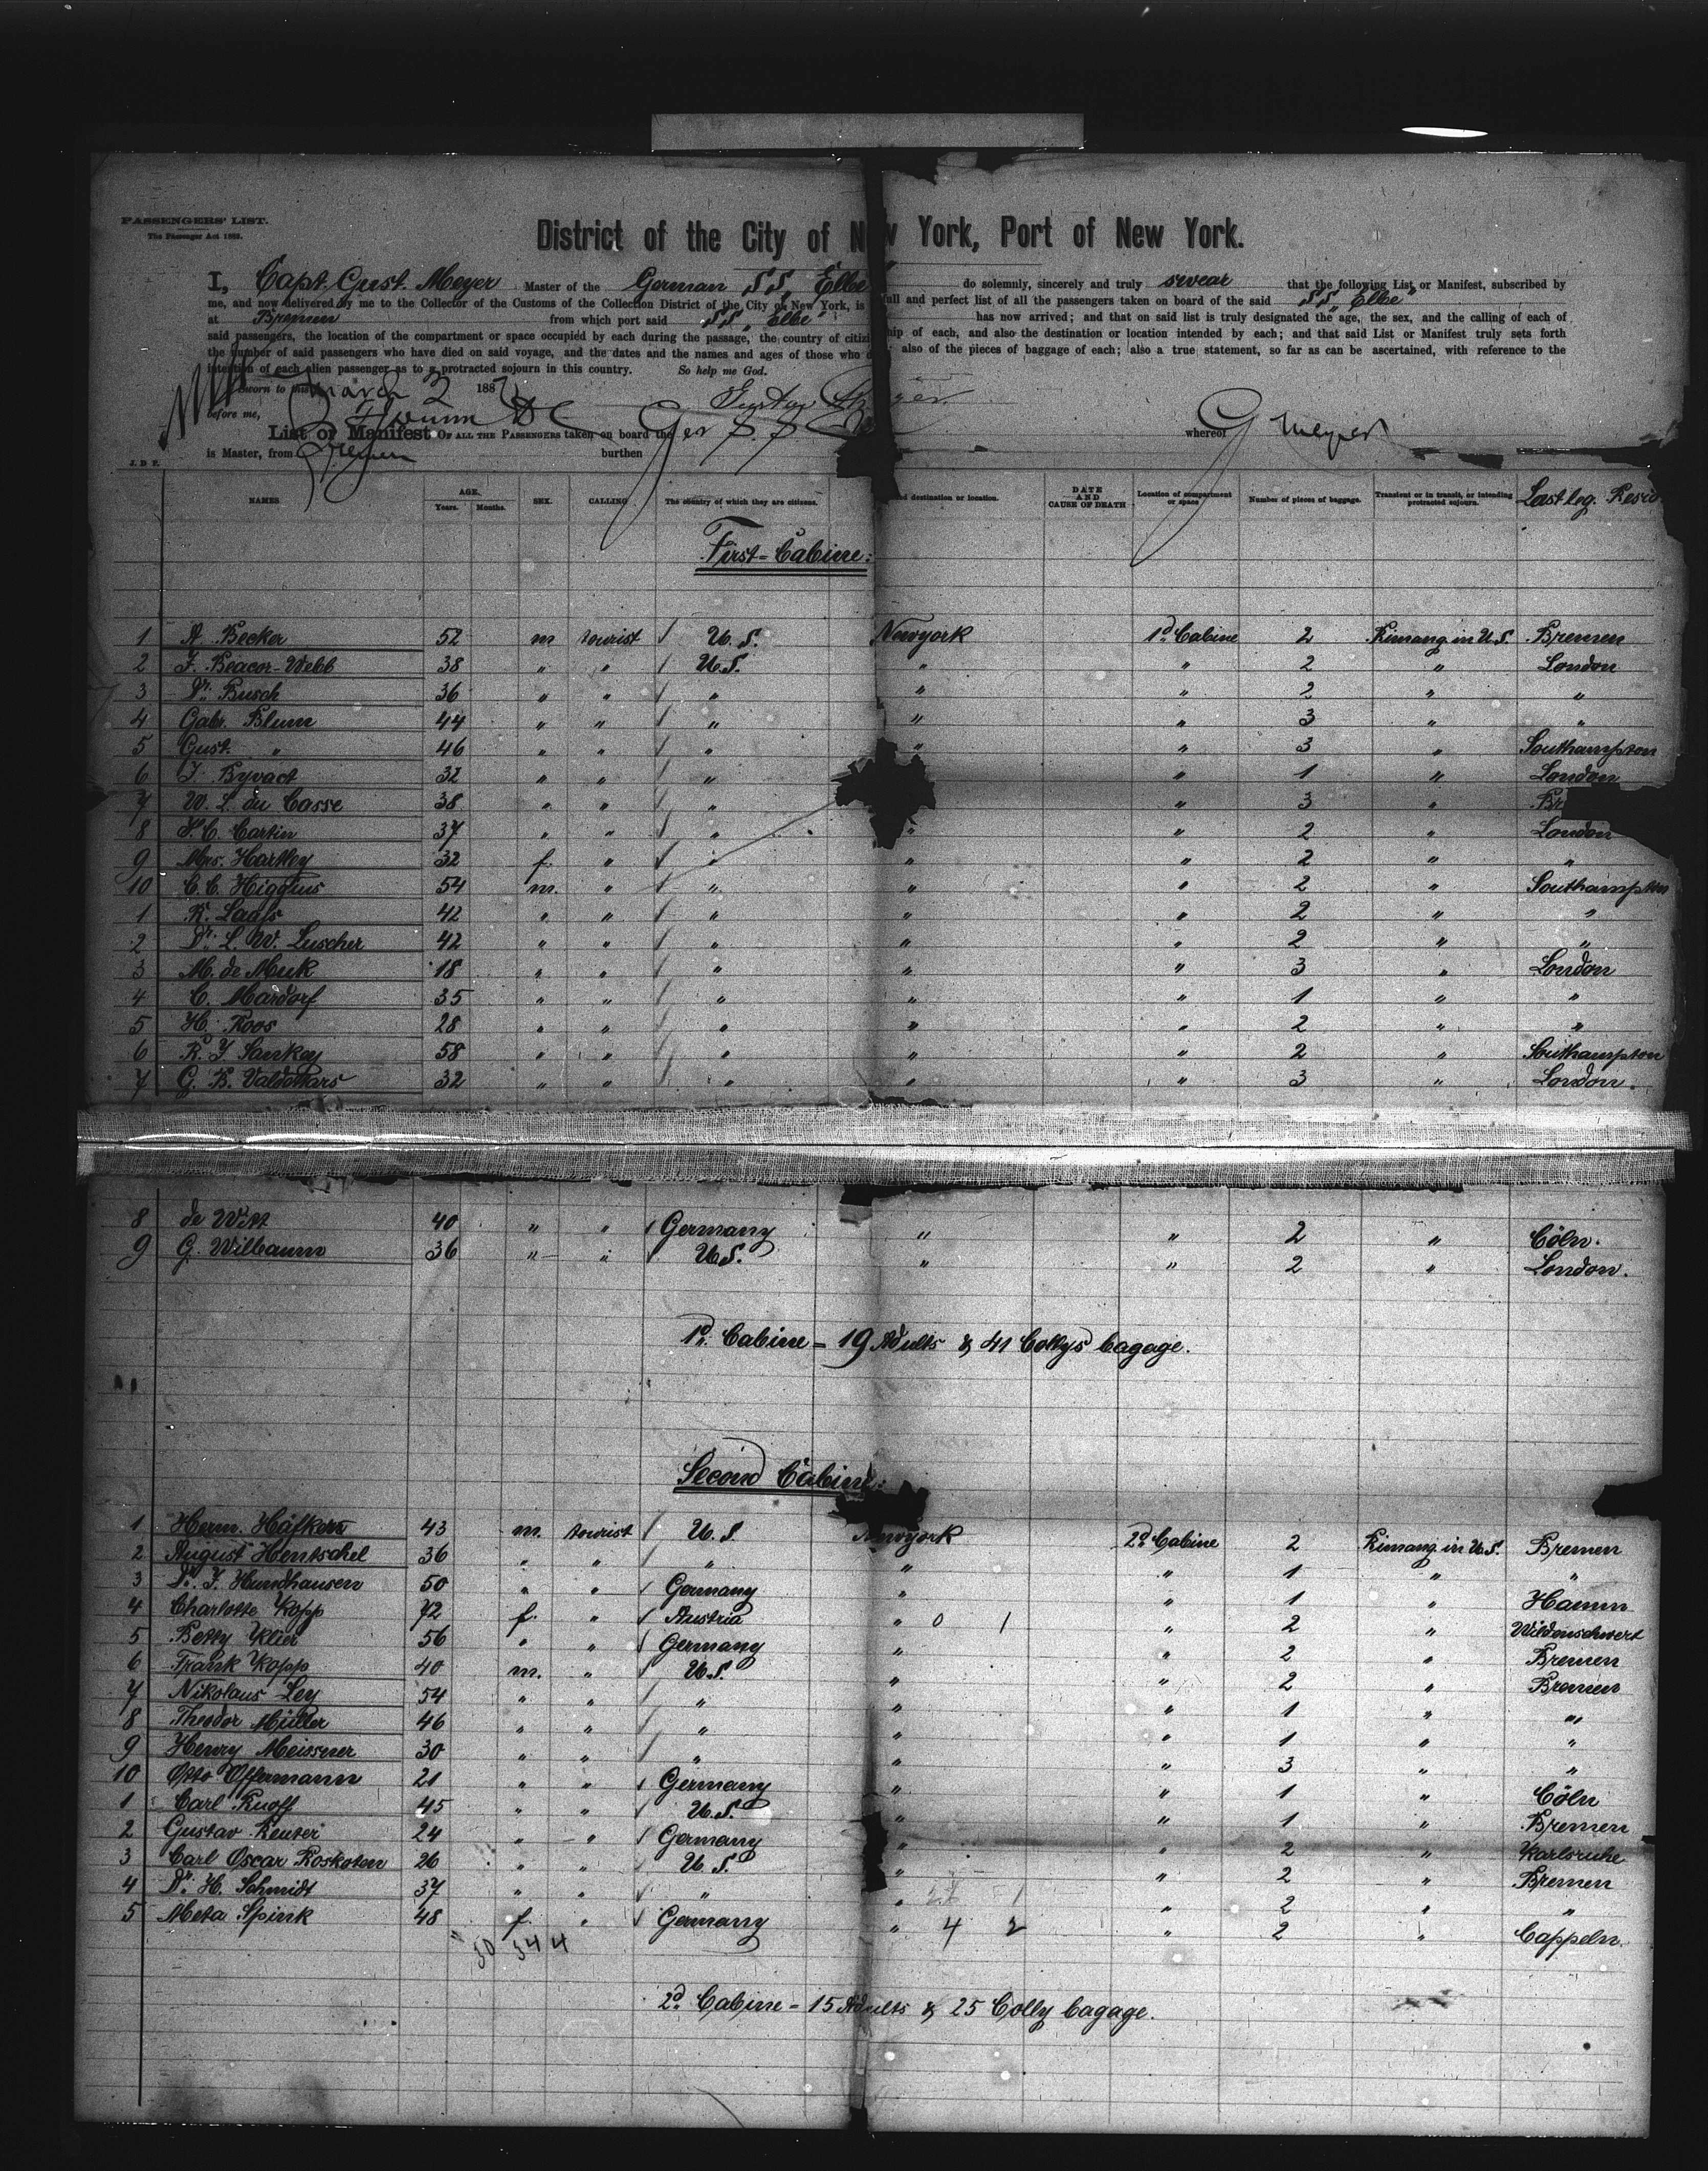 PASSENGERS' LIST.
The Passenger Act 1882.
District of the City of N w York, Port of New York.
I, Capt. Gust. Meyer Master of the German S.S. „Elbe do solemnly, sincerely and truly swear that the following List or Manifest, subscribed by
me, and now delivered by me to the Collector of the Customs of the Collection District of the City of New York, is full and perfect list of all the passengers taken on board of the said S.S. „Elbe"
at Bremen from which port said S.S. „Elbe" has now arrived; and that on said list is truly designated the age, the sex, and the calling of each of
said passengers, the location of the compartment or space occupied by each during the passage, the country of citiz hip of each, and also the destination or location intended by each; and that said List or Manifest truly sets forth
the number of said passengers who have died on said voyage, and the dates and the names and ages of those who d also of the pieces of baggage of each; also a true statement, so far as can be ascertained, with reference to the
intention of each alien passenger as to a protracted sojourn in this country. So help me God.
Sworn to this March 2 188
before me,
List or Manifest OF ALL THE PASSENGERS taken on board the Ger S.S. whereof G Meyer
is Master, from Bremen burthen
J. D. F.
NAMES AGE. Years. Months. SEX. CALLING The country of which they are citizens. d destination or location. DATE AND CAUSE OF DEATH Location of compartment or space Number of pieces of baggage. Transient or in transit, or intending protracted sojourn. Last leg. Resid
First-Cabine:
1 A. Becker 52 m tourist / U.S. Newyork 1d. Cabine 2 Rimang in U.S. Bremen
2 F. Beacor-Webb 38 " " / U.S. " " 2 " London
3 Dr. Busch 36 " " / " " " 2 " "
4 Gabr. Blum 44 " " / " " " 3 " "
5 Gust. " 46 " " / " " " 3 " Southampton
6 J. Byvact 32 " " / " " 1 " London
7 W. L. du Casse 38 " " / " " 3 " Br
8 S.C. Cartin 37 " " / " " " 2 " London
9 Mrs. Hartley 32 f. " / " " " 2 " "
10 C.C. Higgins 54 m. " / " " " 2 " Southampton
1 K. Laafs 42 " " / " " " 2 " "
2 Dr. L. W. Luscher 42 " " / " " " 2 " "
3 M. de Muk 18 " " / " " " 3 " London
4 C. Mardorf 35 " " / " " " 1 " "
5 H. Roos 28 " " / " " " 2 " "
6 R. J. Sankey 58 " " / " " " 2 " Southampton
7 G. B. 32 " " / " " " 3 " London.
8 de Witt 40 " " / Germany " " 2 " Cöln.
9 G. Wilbaum 36 " " / U.S. " " 2 " London.
1d. Cabine = 19 Adults & 41 Collys bagage.
Second Cabine:
1 Herm. Häfkern 43 m. tourist / U.S. Newyork 2d. Cabine 2 Rimang in U.S. Bremen
2 August Hentschel 36 " " / " " " 1 " "
3 Dr. F. Hundhausen 50 " " / Germany " " 1 " Hamm
4 Charlotte Kopp 72 f. " / Austria " 0 1 " 2 " Wildenschwert
5 Betty Klier 56 " " / Germany " " 2 " Bremen
6 Frank Kopp 40 m. " / U.S. " " 2 " Bremen
7 Nikolaus Ley 54 " " / " " " 1 " "
8 Theodor Müller 46 " " / " " " 1 " "
9 Henry Meissner 30 " " / " " " 3 " "
10 Otto Offermann 21 " " / Germany " " 1 " Cöln
1 Carl Knoff 45 " " / U.S. " " 1 " Bremen
2 Gustav Reuter 24 " " / Germany " " 2 " Karlsruhe
3 Carl Oscar Roskoten 26 " " / U.S. " " 2 " Bremen
4 Dr. H. Schmidt 37 " " / " " " 2 " "
5 Meta Spink 48 f. " / Germany " 4 2 " 2 " Cappeln.
50 544
2d. Cabine = 15 Adults & 25 Colly bagage.